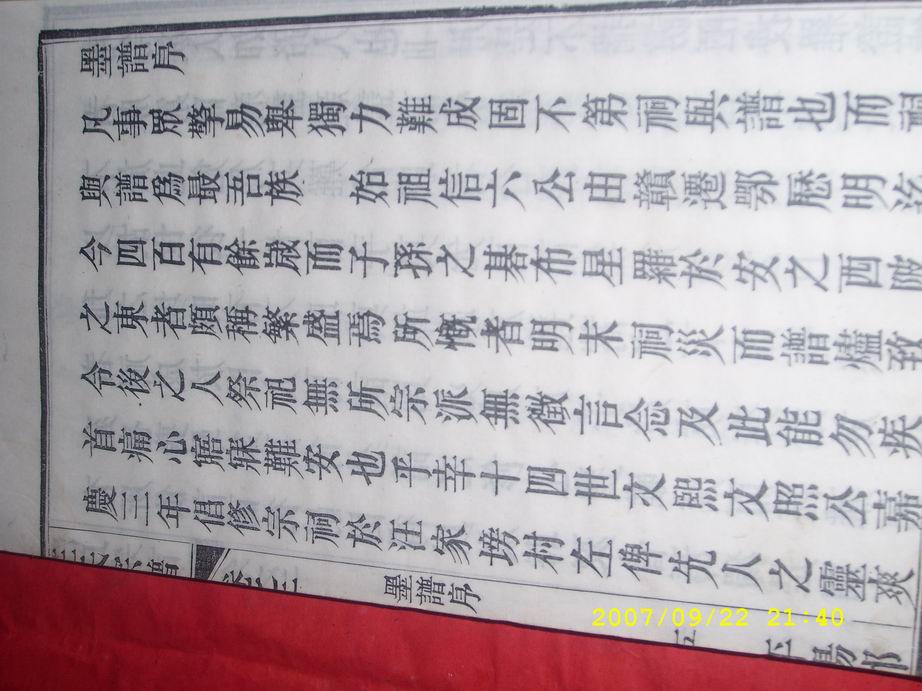 墨譜序
凡事眾擎易舉獨力難成固不第祠與譜也而祠
與譜爲最吾族 始祖信六公由贛遷鄂歷明迄
今四百有餘歲而子孫之棊布星羅於安之西陂
之東者頗稱繁盛焉所慨者明末祠災而譜燼致
令後之人祭祀無所宗派無徵言念及此能勿疾
首痛心寤寐難安也乎幸十四世文熙文照公嘉
慶三年倡修宗祠於汪家塝村左俾先人之靈爽
墨譜序
2007/09/22 21:40